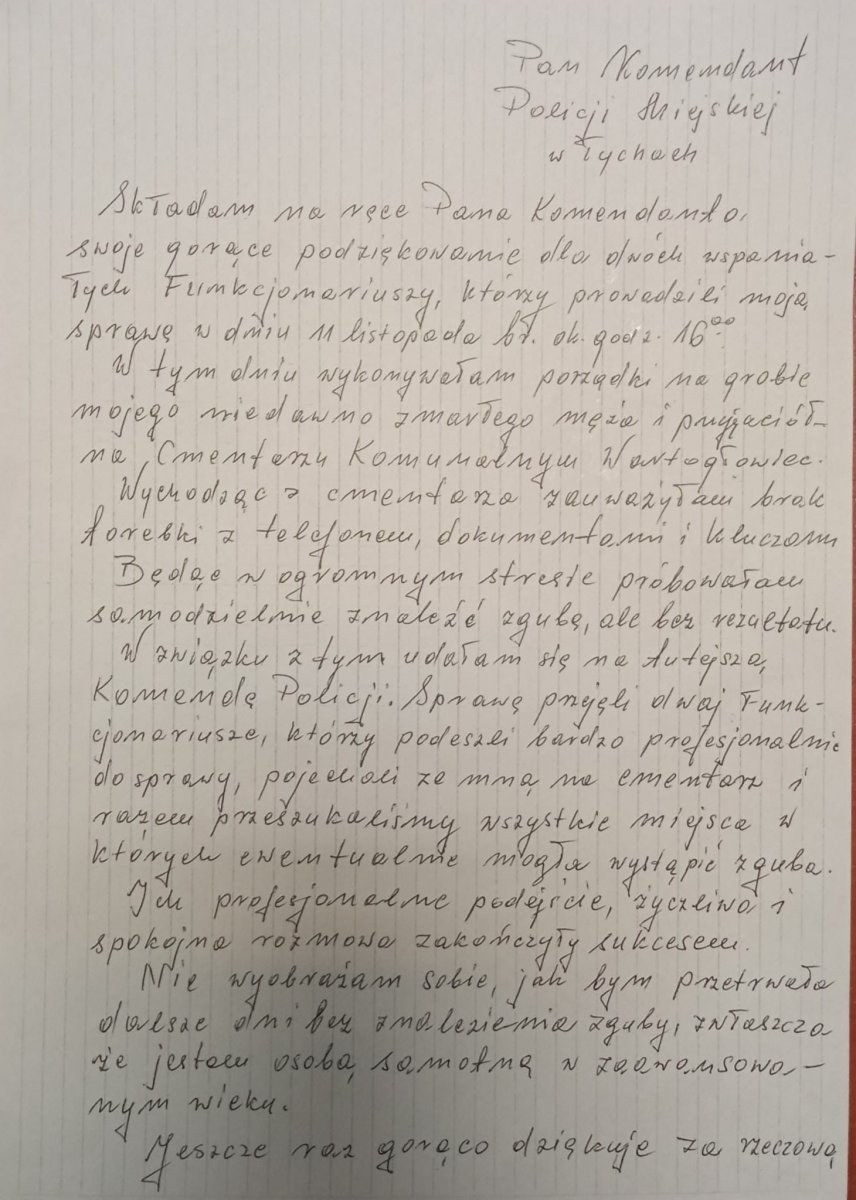 Pan Komendant
Policji Miejskiej
w Tychach
Składam na ręce Pana Komendanta,
swoje gorące podziękowanie dla dwóch wspania-
łych Funkcjonariuszy, którzy prowadzili moją
sprawę w dniu 11 listopada br. ok. godz. 16⁰⁰.
W tym dniu wykonywałam porządki na grobie
mojego niedawno zmarłego męża i przyjaciół
na Cmentarzu Komunalnym Wartogłowiec.
Wychodząc z cmentarza zauważyłam brak
torebki z telefonem, dokumentami i kluczami
Będąc w ogromnym stresie próbowałam
samodzielnie znaleźć zgubę, ale bez rezultatu.
W związku z tym udałam się na tutejszą
Komendę Policji. Sprawę przejęli dwaj Funk-
cjonariusze, którzy podeszli bardzo profesjonalnie
do sprawy, pojechali ze mną na cmentarz i
razem przeszukaliśmy wszystkie miejsca w
których ewentualnie mogła wystąpić zguba.
Ich profesjonalne podejście, życzliwa i
spokojna rozmowa zakończyły sukcesem.
Nie wyobrażam sobie, jak bym przetrwała
dalsze dni bez znalezienia zguby, zwłaszcza
że jestem osobą samotną w zaawansowa-
nym wieku.
Jeszcze raz gorąco dziękuje za rzeczową